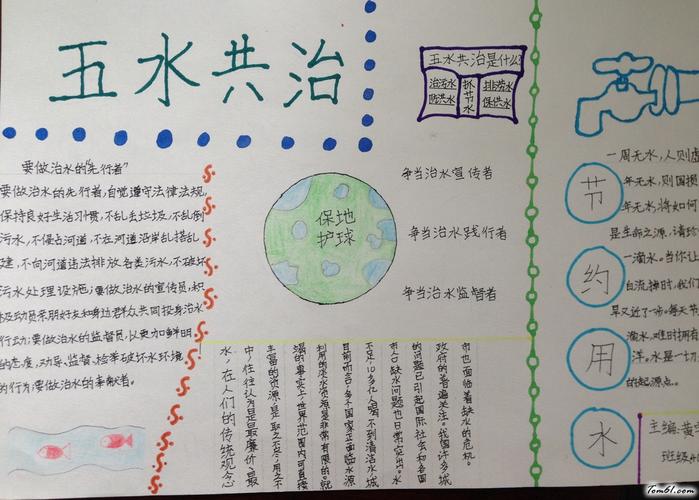 五水共治
五水共治是什么?
治污水
防洪水
抓节水
排涝水
保供水
要做治水的"先行者"
要做治水的先行者,自觉遵守法律法规,
保持良好生活习惯,不乱丢垃圾,不乱倒
污水,不侵占河道,不在河道沿岸乱搭乱
建,不向河道违法排放各类污水,不破坏
污水处理设施;要做治水的宣传员,积
极动员亲朋好友和身边群众共同投身治水
行动;要做治水的监督员,以更加鲜明
的态度,劝导、监督、检举破坏水环境
的行为要做治水的奉献者。
保护地球
争当治水宣传者
争当治水践行者
争当治水监督者
水,在人们的传统观念
中,往往认为是最廉价、最
丰富的资源,是取之不尽,用之不
竭的。事实上,世界范围内可直接
利用的淡水资源是非常有限的。就
目前而言,多个国家正面临水源
不足,10多亿人喝不到清洁水,城
市人口缺水问题也日常突出。水
的问题已引起国际社会和各国
政府的普遍关注。我国许多城
市也面临着缺水的危机。
节约用水
一周无水,人则虚
年无水,则国损
年无水,将如何
是生命之源,请珍
一滴水。当你让
白流掉时,我们
早又近了一步。每天节
滴水,难时拥有
洋。水是一切
的起源点。
主编:黄
班级
Tom61.com